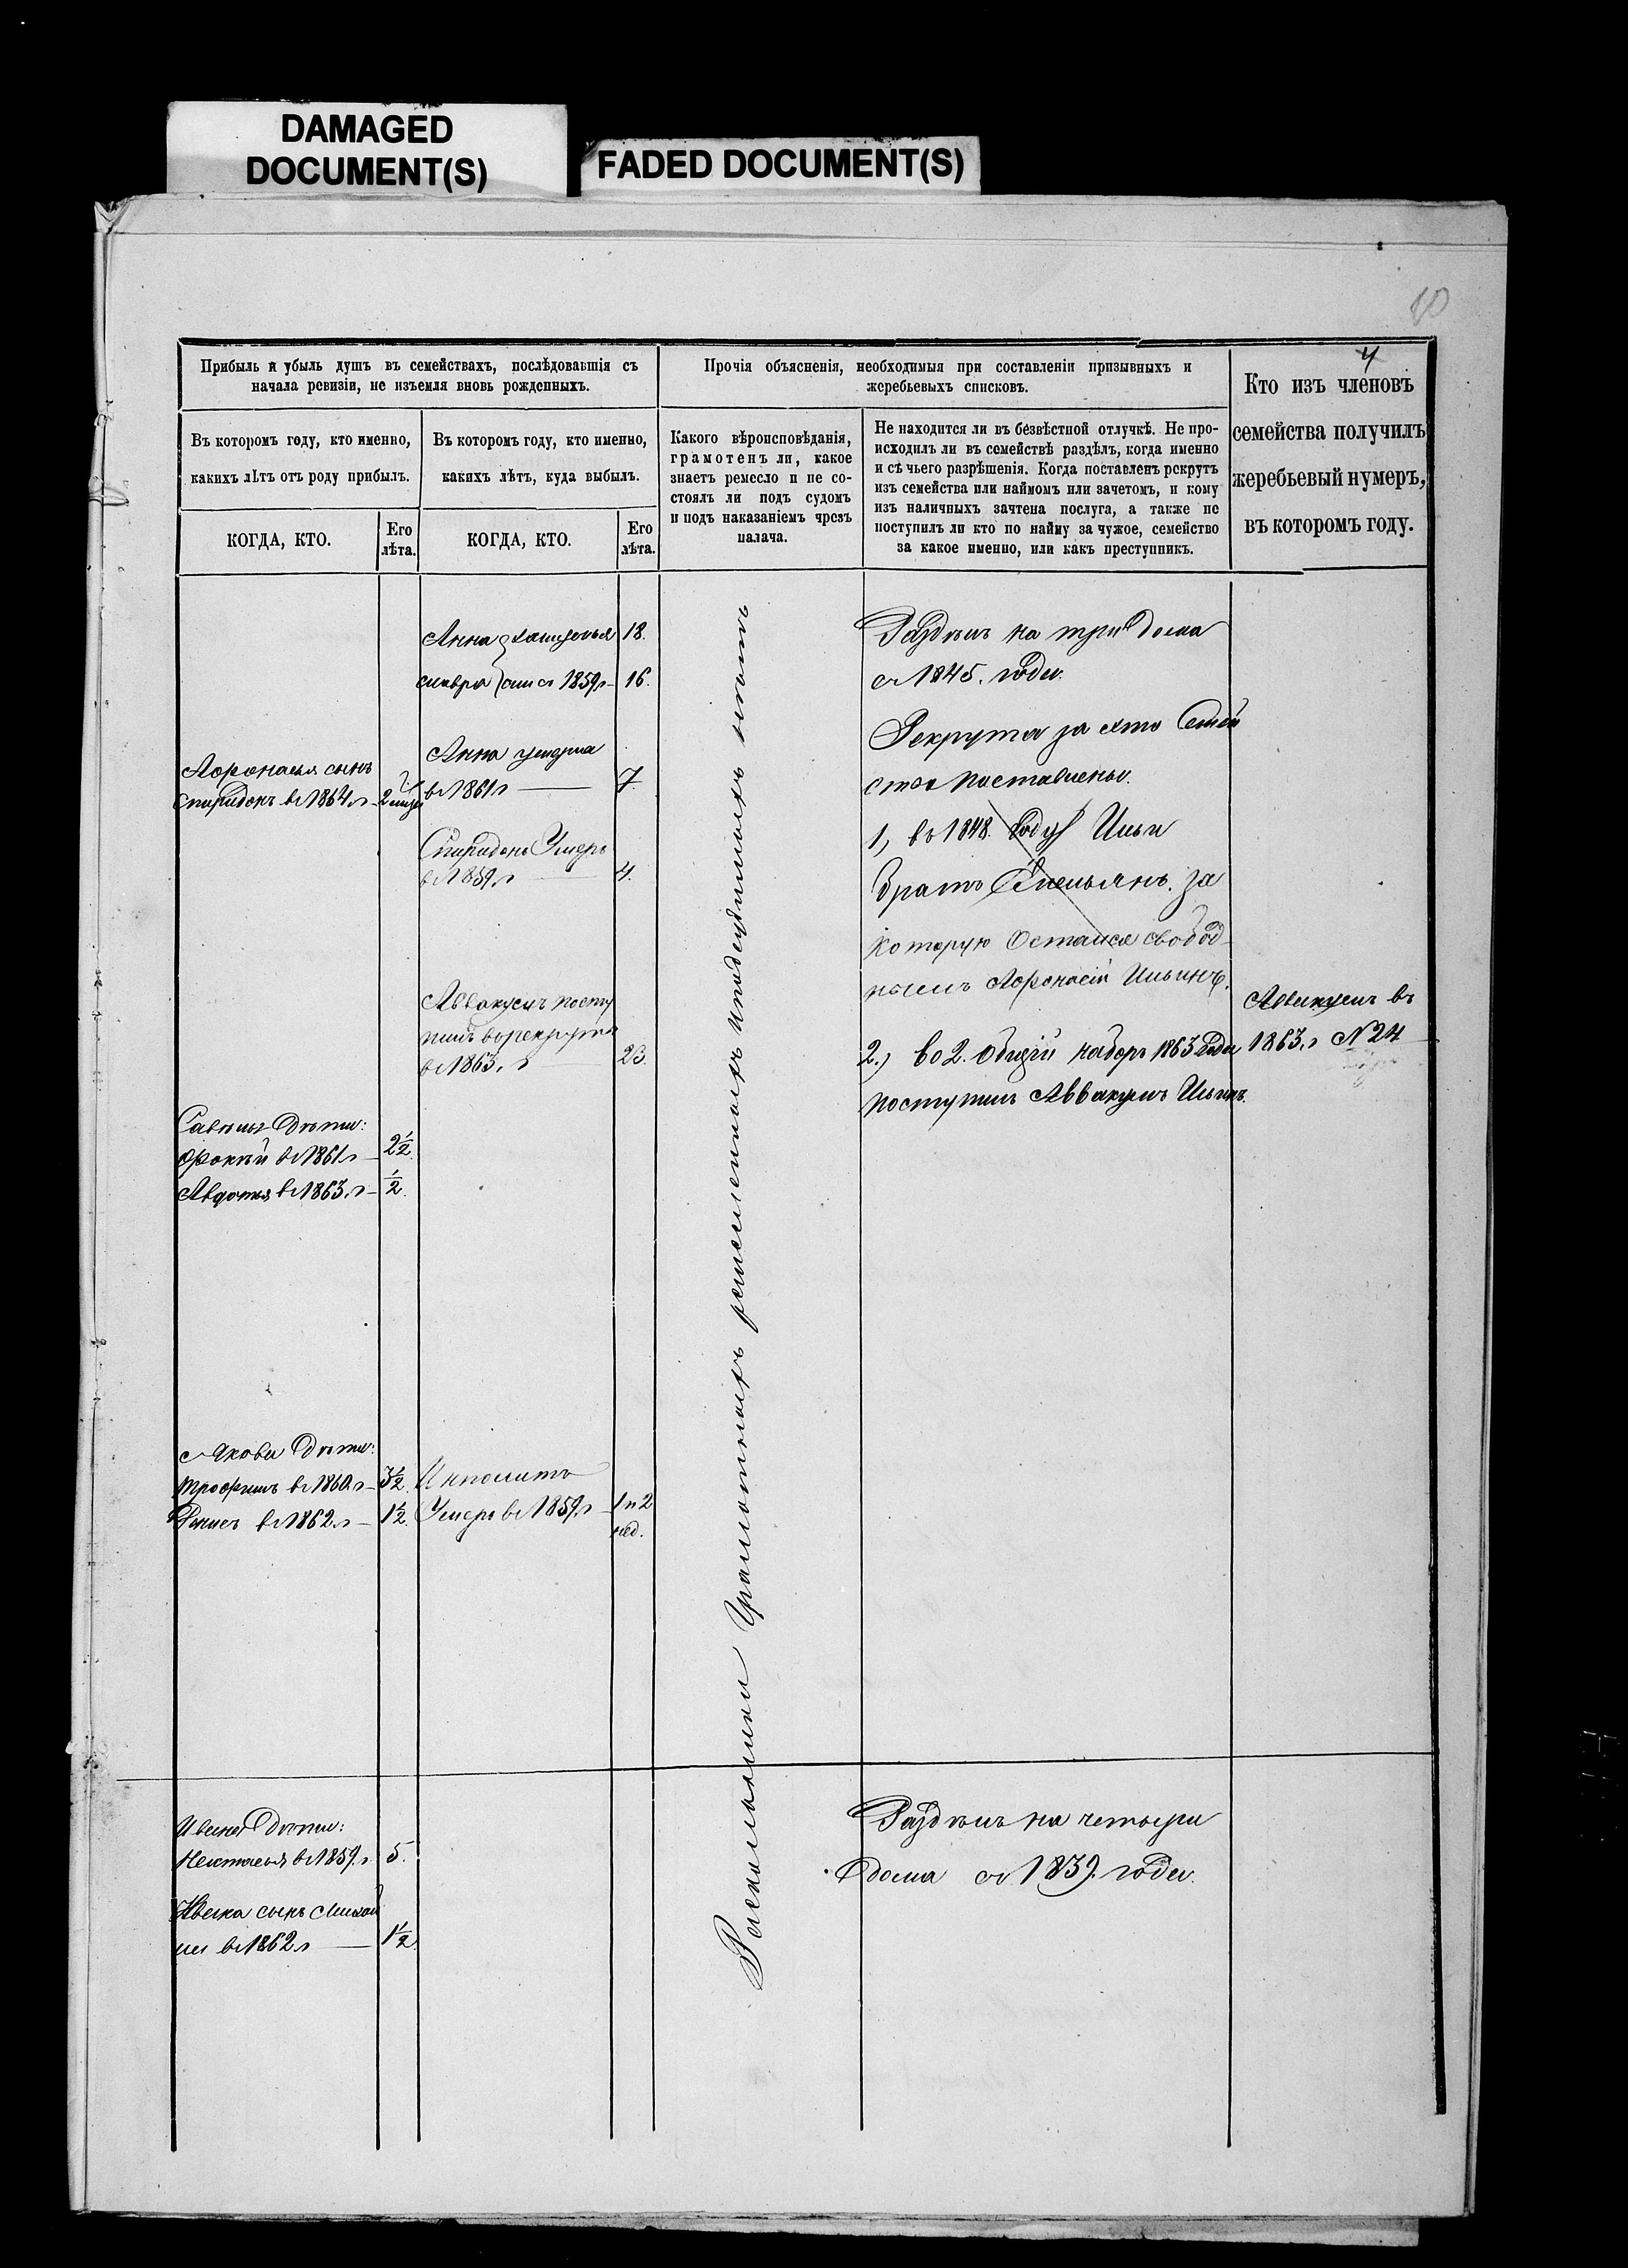 DAMAGED
DOCUMENT(S)
FADED DOCUMENT(S)
10
4
Прибыль и убыль душъ въ семействахъ, послѣдовавшія съ
начала ревизіи, не изъемля вновь рожденныхъ.
Въ которомъ году, кто именно,
какихъ лѣтъ отъ роду прибылъ.
Въ которомъ году, кто именно,
какихъ лѣтъ, куда выбылъ.
КОГДА, КТО.
Его
лѣта.
КОГДА, КТО.
Его
лѣта.
Прочія объясненія, необходимыя при составленіи призывныхъ и
жеребьевыхъ списковъ.
Какого вѣроисповѣданія,
грамотенъ ли, какое
знаетъ ремесло и не со-
стоялъ ли подъ судомъ
и подъ наказаніемъ чрезъ
палача.
Не находится ли въ безвѣстной отлучкѣ. Не про-
исходилъ ли въ семействѣ раздѣлъ, когда именно
и съ чьего разрѣшенія. Когда поставленъ рекрутъ
изъ семейства или наймомъ или зачетомъ, и кому
изъ наличныхъ зачтена послуга, а также не
поступилъ ли кто по найму за чужое, семейство
за какое именно, или какъ преступникъ.
Кто изъ членовъ
семейства получилъ
жеребьевый нумеръ,
въ которомъ году.
Афонасья сынъ
Спиридонъ в 1864 г 2
Савелья дѣти:
Фокѣй в 1861 г 2 1/2
Авдотья в 1863 г 1/2
Якова дѣти:
Трофимъ в 1860 г 3 1/2
Денисъ в 1862 г 1 1/2
Ивана дѣти:
Настасья в 1859 г 5.
Ивана сынъ Михай
ла в 1862 г 1 1/2
Анна замужья 18.
Мавра с 1859 г 16.
Анна умерла
в 1861 г 7
Спиридонъ Умеръ
в 1859 г 4.
Аввакумъ посту
пилъ въ рекруты
в 1863. г 23.
Ипполитъ
Умеръ в 1859 г 1 и 2
нед.
Раскольники Грамотныхъ ремесленныхъ и подсудимыхъ нѣтъ
Раздѣлъ на три дома
съ 1845. года.
Рекрута за ято Семей
ства поставлены.
1, въ 1848. Году Ильи
братъ Емельянъ. за
которую Остался свобод
нымъ Афонасій Ильинъ.
2.) во 2. Общій наборъ 1863 года
поступилъ Аввакумъ Ильинъ.
Аввакумъ въ
1863. г N 24
Раздѣлъ на четыри
дома съ 1839. года.